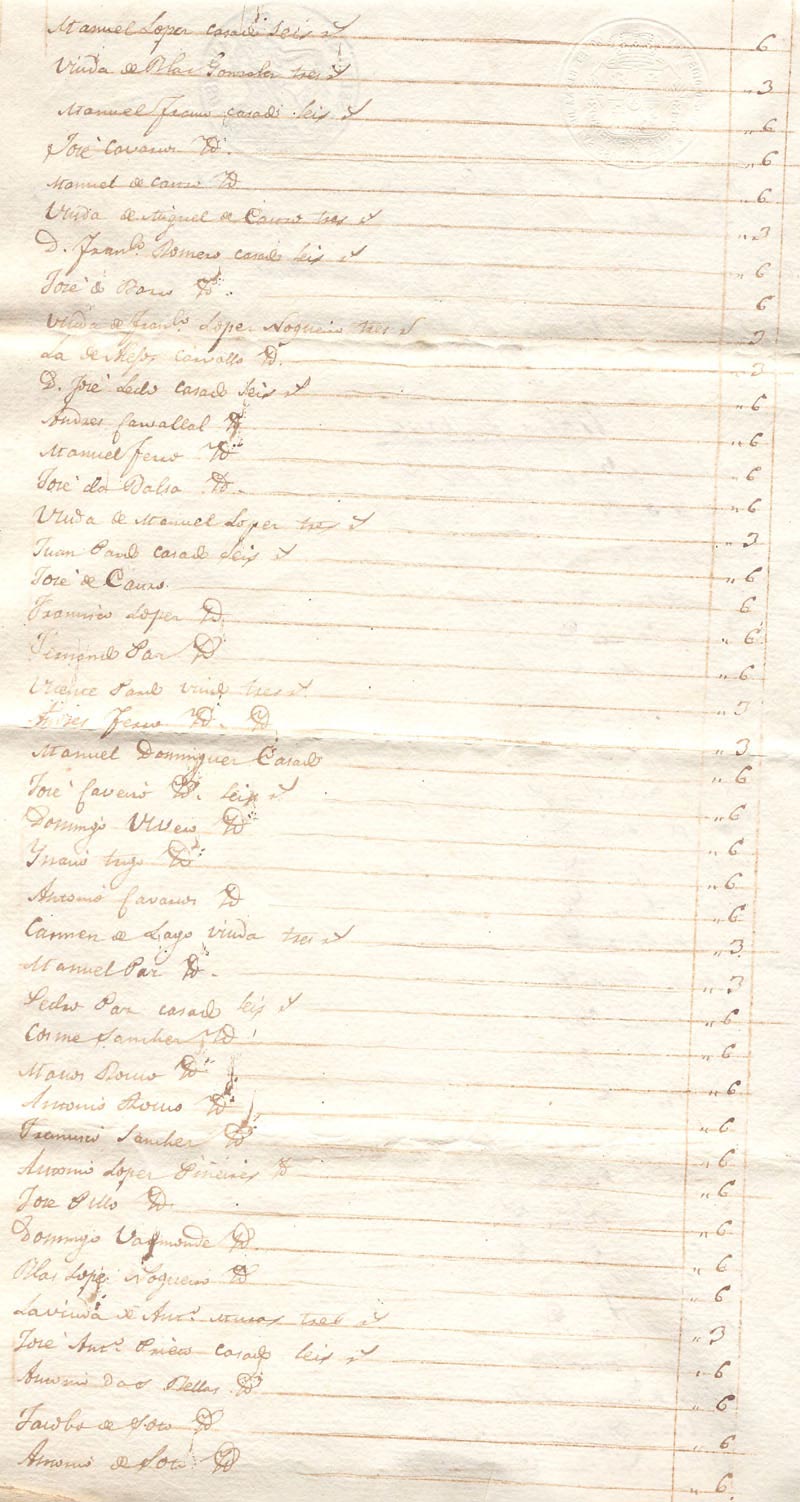 Manuel Lopez casado seis rs 6
Viuda de Blas Gonzalez tres rs " 3
Manuel Franco casado seis rs " 6
José Cavanos Yd. " 6
Manuel de Canro Yd " 6
Viuda de Miguel de Canro tres rs " 3
D. Franco. Romero casado seis rs " 6
José de Barro Yd. 6
Viuda de Franco. Lopez Nogueiro tres rs 3
La de Carvallo Yd. " 3
D. José Ledo casado seis rs " 6
Andres Carvallal Yd " 6
Manuel Ferro Yd " 6
José da Balsa Yd. " 6
Viuda de Manuel Lopez tres rs " 3
Juan Pardo casado seis rs " 6
José de Canro 6
Francisco Lopez Yd " 6
Paz Yd " 6
Vicente Pardo viudo tres rs " 3
Andres Ferro Yd. Yd " 3
Manuel Dominguez Casado " 6
José Caveiro Yd. seis rs " 6
Domingo Vivero Yd " 6
Ygnacio trigo Yd " 6
Antonio Cavanos Yd " 6
Carmen de Lago viuda tres rs " 3
Manuel Paz Yd. " 3
Pedro Paz casado seis rs " 6
Cosme Sanchez Yd " 6
Marcos Romo Yd " 6
Antonio Romo Yd " 6
Francisco Sanchez Yd " 6
Antonio Lopez Piñeires Yd " 6
José Pillo Yd " 6
Domingo Vaamonde Yd " 6
Blas Lopez Nogueiro Yd " 6
La viuda de Anto. Muras tres rs " 3
José Anto. Prieto casado seis rs " 6
Antonio Das Pellas Yd " 6
Jacobo de Soto Yd " 6
Antonio de Soto Yd " 6